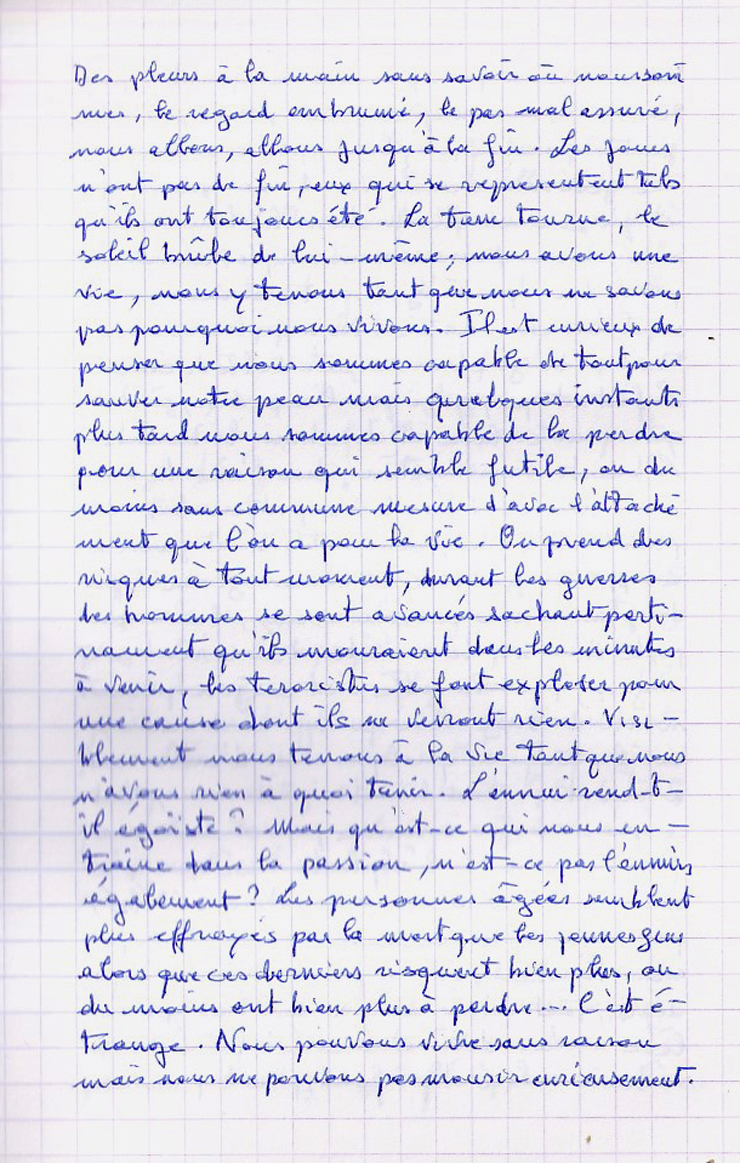 Des pleurs à la main sans savoir où nous som
mes, le regard embrumé, le pas mal assuré,
nous allons, allons jusqu'à la fin. Les jours
n'ont pas de fin, eux qui se representent tels
qu'ils ont toujours été. La terre tourne, le
soleil brûle de lui-même; nous avons une
vie, nous y tenons tant que nous ne savons
pas pourquoi nous vivons. Il est curieux de
penser que nous sommes capable de tout pour
sauver notre peau mais quelques instants
plus tard nous sommes capable de la perdre
pour une raison qui semble futile, ou du
moins sans commune mesure d'avec l'attaché
ment que l'on a pour la vie. On prend des
risques à tout moment, durant les guerres
des hommes se sont avancés sachant perti-
nament qu'ils mouraient dans les minutes
à venir, les terroristes se font exploser pour
une cause dont ils ne verront rien. Visi-
blement nous tenons à la vie tant que nous
n'avons rien à quoi tenir. L'ennui rend-t-
il égoïste? Mais qu'est-ce qui nous en-
traine dans la passion, n'est-ce pas l'ennui
également? Les personnes âgées semblent
plus effrayés par la mort que les jeunes gens
alors que ces derniers risquent bien plus, ou
du moins ont bien plus à perdre... C'est é-
trange. Nous pouvons vivre sans raison
mais nous ne pouvons pas mourir curieusement.